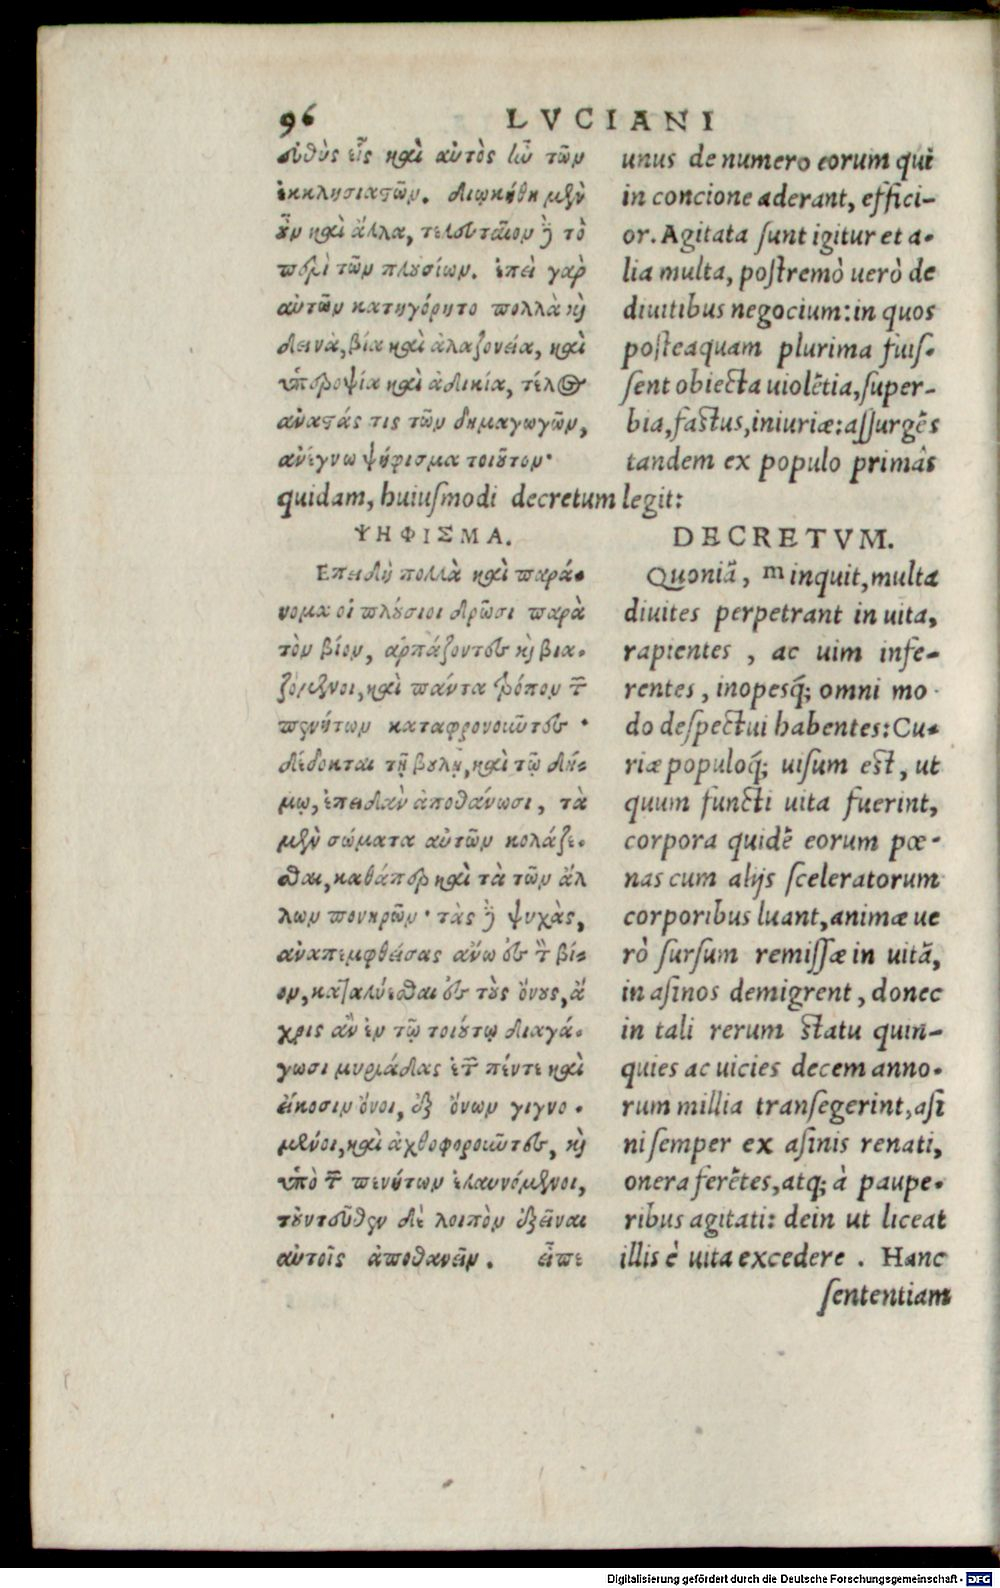 96 LVCIANI
εὐθὺς εἷς καὶ αὐτὸς ἦν τῶν
ἐκκλησιαστῶν. διῳκήθη μὲν
οὖν καὶ ἄλλα, τελευταῖον δὲ τὸ
περὶ τῶν πλουσίων. ἐπεὶ γὰρ
αὐτῶν κατηγόρητο πολλὰ καὶ
δεινὰ, βία καὶ ἀλαζονεία, καὶ
ὑπεροψία καὶ ἀδικία, τέλος
ἀναστάς τις τῶν δημαγωγῶν,
ἀνέγνω ψήφισμα τοιοῦτον·
unus de numero eorum qui
in concione aderant, effici-
or. Agitata ſunt igitur et a-
lia multa, poſtremò uerò de
diuitibus negocium: in quos
poſteaquam plurima fuiſ-
ſent obiecta uiolẽtia, ſuper-
bia, faſtus, iniuriæ: aſſurgẽs
tandem ex populo primãs
quidam, huiuſmodi decretum legit:
ΨΗΦΙΣΜΑ.
Επειδὴ πολλὰ καὶ παρά-
νομα οἱ πλούσιοι δρῶσι παρὰ
τὸν βίον, ἁρπάζοντες καὶ βια-
ζόμενοι, καὶ πάντα τρόπον τῶν
πενήτων καταφρονοῦντες ·
δέδοκται τῇ βουλῇ, καὶ τῷ δή-
μῳ, ἐπειδὰν ἀποθάνωσι, τὰ
μὲν σώματα αὐτῶν κολάζε-
σθαι, καθάπερ καὶ τὰ τῶν ἄλ
λων πονηρῶν· τὰς δὲ ψυχὰς,
ἀναπεμφθείσας ἄνω ἐς τὸν βί-
ον, καταδύεσθαι ἐς τοὺς ὄνους, ἄ
χρις ἂν ἐν τῷ τοιούτῳ διαγά-
γωσι μυριάδας ἐτῶν πέντε καὶ
εἴκοσιν ὄνοι, ἐξ ὄνων γιγνό-
μενοι, καὶ ἀχθοφοροῦντες, καὶ
ὑπὸ τῶν πενήτων ἐλαυνόμενοι,
τοὐντεῦθεν δὲ λοιπὸν ἐξεῖναι
αὐτοῖς ἀποθανεῖν. εἶπε
DECRETVM.
Quoniã, m inquit, multa
diuites perpetrant in uita,
rapientes, ac uim infe-
rentes, inopesq́; omni mo
do deſpectui habentes: Cu-
riæ populoq́; uiſum eſt, ut
quum functi uita fuerint,
corpora quidẽ eorum pœ-
nas cum alijs ſceleratorum
corporibus luant, animæ ue
rò ſurſum remiſſæ in uitã,
in aſinos demigrent, donec
in tali rerum ſtatu quin-
quies ac uicies decem anno-
rum millia tranſegerint, aſi
ni ſemper ex aſinis renati,
onera ferẽtes, atq; à paupe-
ribus agitati: dein ut liceat
illis è uita excedere. Hanc
ſententiam
Digitalisierung gefördert durch die Deutsche Forschungsgemeinschaft - DFG